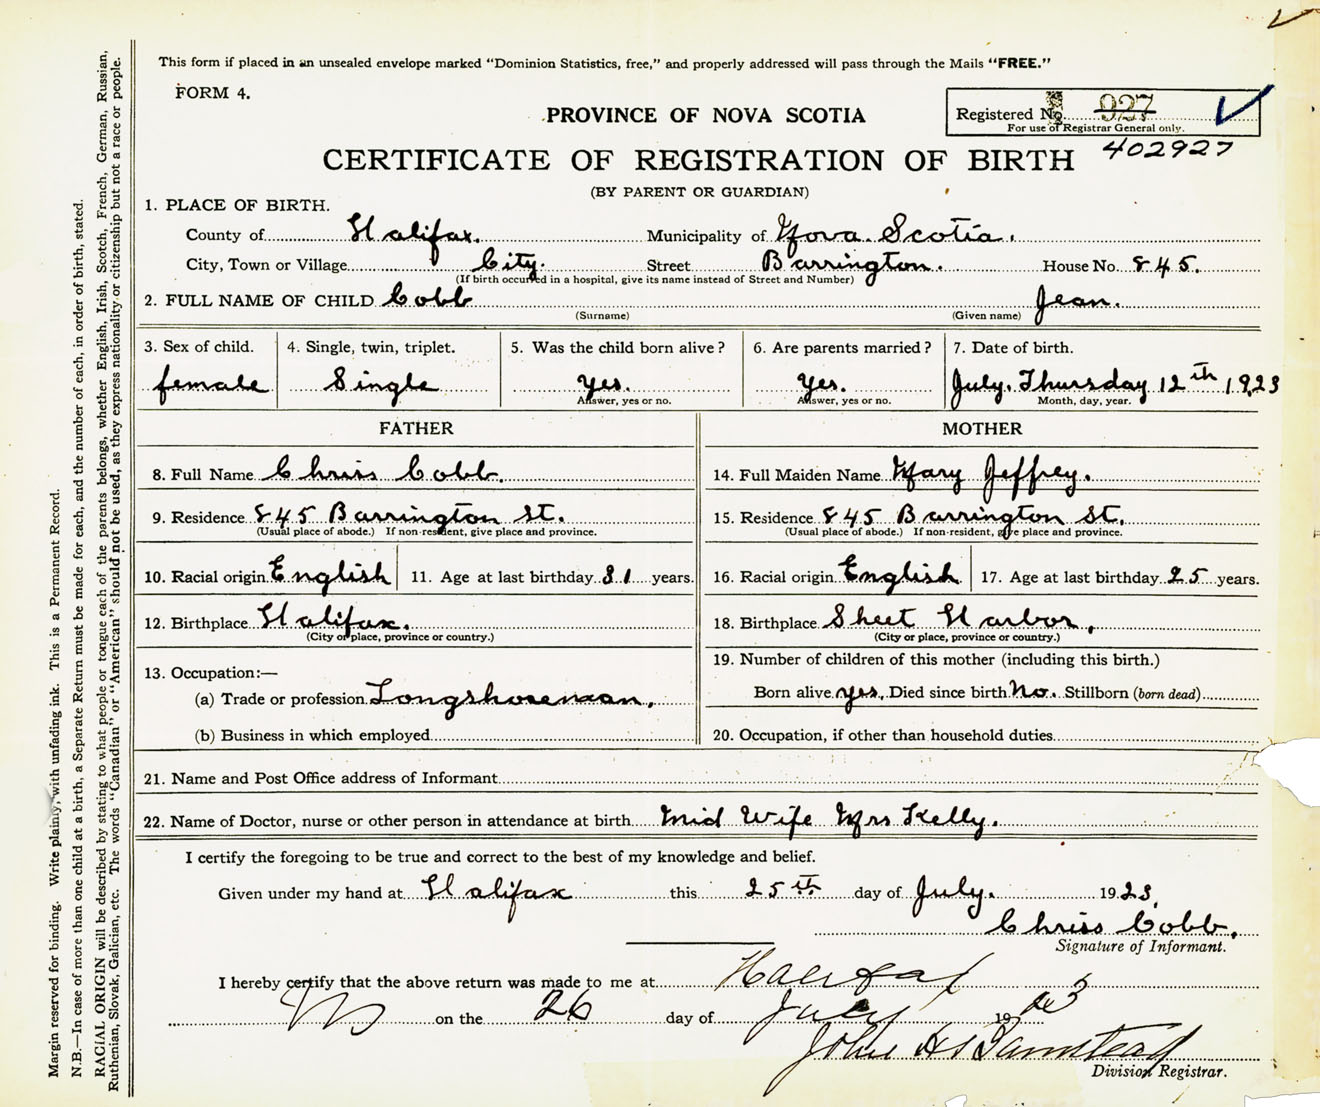 This form if placed in an unsealed envelope marked "Dominion Statistics, free," and properly addressed will pass through the Mails "FREE."
FORM 4.
PROVINCE OF NOVA SCOTIA
Registered No. 927
For use of Registrar General only.
402927
CERTIFICATE OF REGISTRATION OF BIRTH
(BY PARENT OR GUARDIAN)
1. PLACE OF BIRTH.
County of Halifax. Municipality of Nova Scotia.
City, Town or Village City. Street Barrington. House No. 845.
(If birth occurred in a hospital, give its name instead of Street and Number)
2. FULL NAME OF CHILD Cobb Jean.
(Surname) (Given name)
3. Sex of child. 4. Single, twin, triplet. 5. Was the child born alive? 6. Are parents married? 7. Date of birth.
female Single yes. yes. July. Thursday 12th 1923
Answer, yes or no. Answer, yes or no. Month, day, year.
FATHER MOTHER
8. Full Name Chriss Cobb. 14. Full Maiden Name Mary Jeffrey.
9. Residence 845 Barrington St. 15. Residence 845 Barrington St.
(Usual place of abode.) If non-resident, give place and province. (Usual place of abode.) If non-resident, give place and province.
10. Racial origin English 11. Age at last birthday 31 years. 16. Racial origin English 17. Age at last birthday 25 years.
12. Birthplace Halifax. 18. Birthplace Sheet Harbor.
(City or place, province or country.) (City or place, province or country.)
19. Number of children of this mother (including this birth.)
13. Occupation:—
(a) Trade or profession Longshoreman. Born alive yes. Died since birth No. Stillborn (born dead)
(b) Business in which employed 20. Occupation, if other than household duties
21. Name and Post Office address of Informant
22. Name of Doctor, nurse or other person in attendance at birth Mid Wife Mrs Kelly.
I certify the foregoing to be true and correct to the best of my knowledge and belief.
Given under my hand at Halifax this 25th day of July. 1923.
Chriss Cobb.
Signature of Informant.
I hereby certify that the above return was made to me at Halifax
NS on the 26 day of July 1923
John H Barnstead
Division Registrar.
Margin reserved for binding. Write plainly, with unfading ink. This is a Permanent Record.
N.B.—In case of more than one child at a birth, a Separate Return must be made for each, and the number of each, in order of birth, stated.
RACIAL ORIGIN will be described by stating to what people or tongue each of the parents belongs, whether English, Irish, Scotch, French, German, Russian,
Ruthenian, Slovak, Galician, etc. The words "Canadian" or "American" should not be used, as they express nationality or citizenship but not a race or people.